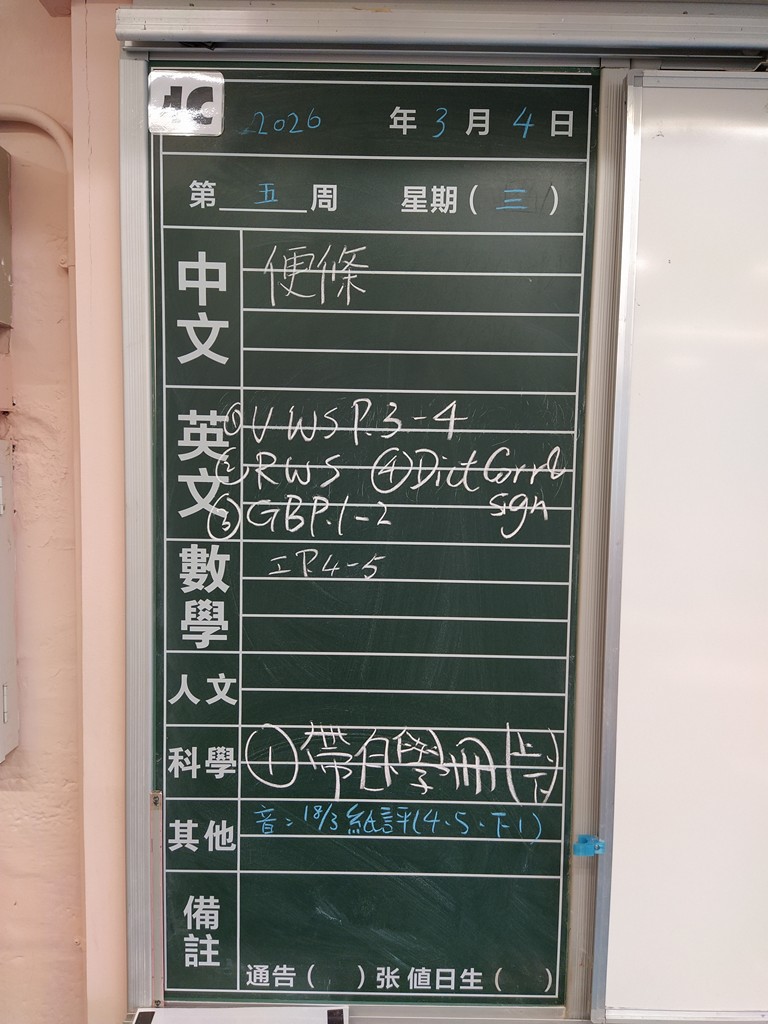 1C
2026 年 3 月 4 日
第 五 周 星期 ( 三 )
中文
便條
英文
① V WS P.3-4
② RWS ④ Dict Corr &
sign
③ GB P.1-2
數學
工 P.4-5
人文
科學
① 帶自學冊(上、下)
其他
音: 18/3 紙評(4、5、下1)
備註
通告 ( ) 张 值日生 ( )